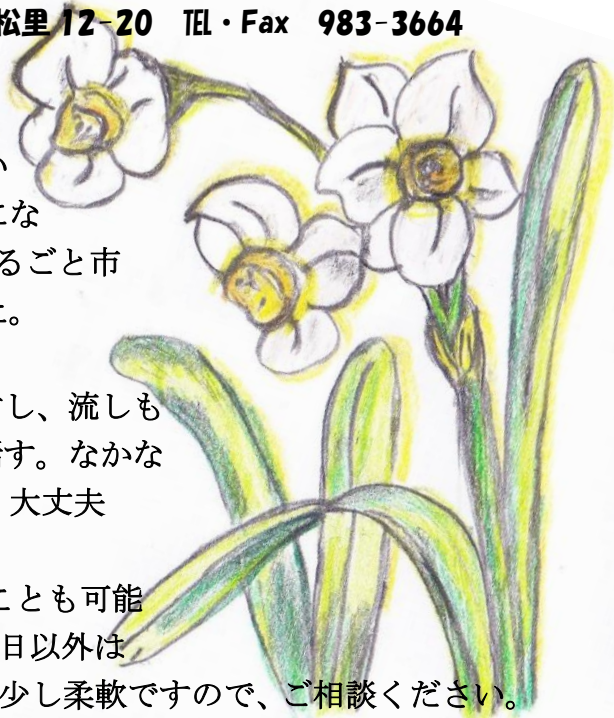 松里 12-20　℡・Fax　983-3664
い
な
るごと市
た。
し、流しも
す。なかな
大丈夫
ことも可能
日以外は
少し柔軟ですので、ご相談ください。